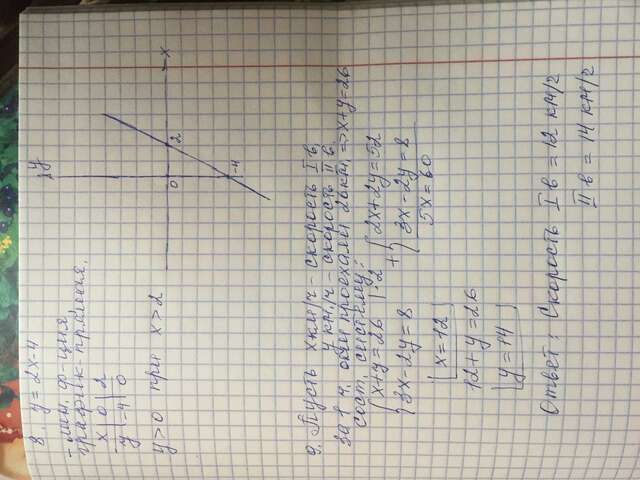 8. y = 2x-4
- лин. ф-ция,
график - прямая.
x | 0 | 2
y | -4 | 0
y
x
0
2
-4
y > 0 при x > 2
9. Пусть x км/ч - скорость I в,
y км/ч - скорость II в.
За 1 ч. они проехали 26 км, => x+y=26
сост. систему:
{ x+y=26 | ·2
3x-2y=8
+ { 2x+2y=52
3x-2y=8
5x=60
{ x=12
12+y=26
{ y=14
Ответ: Скорость I в = 12 км/ч
II в = 14 км/ч